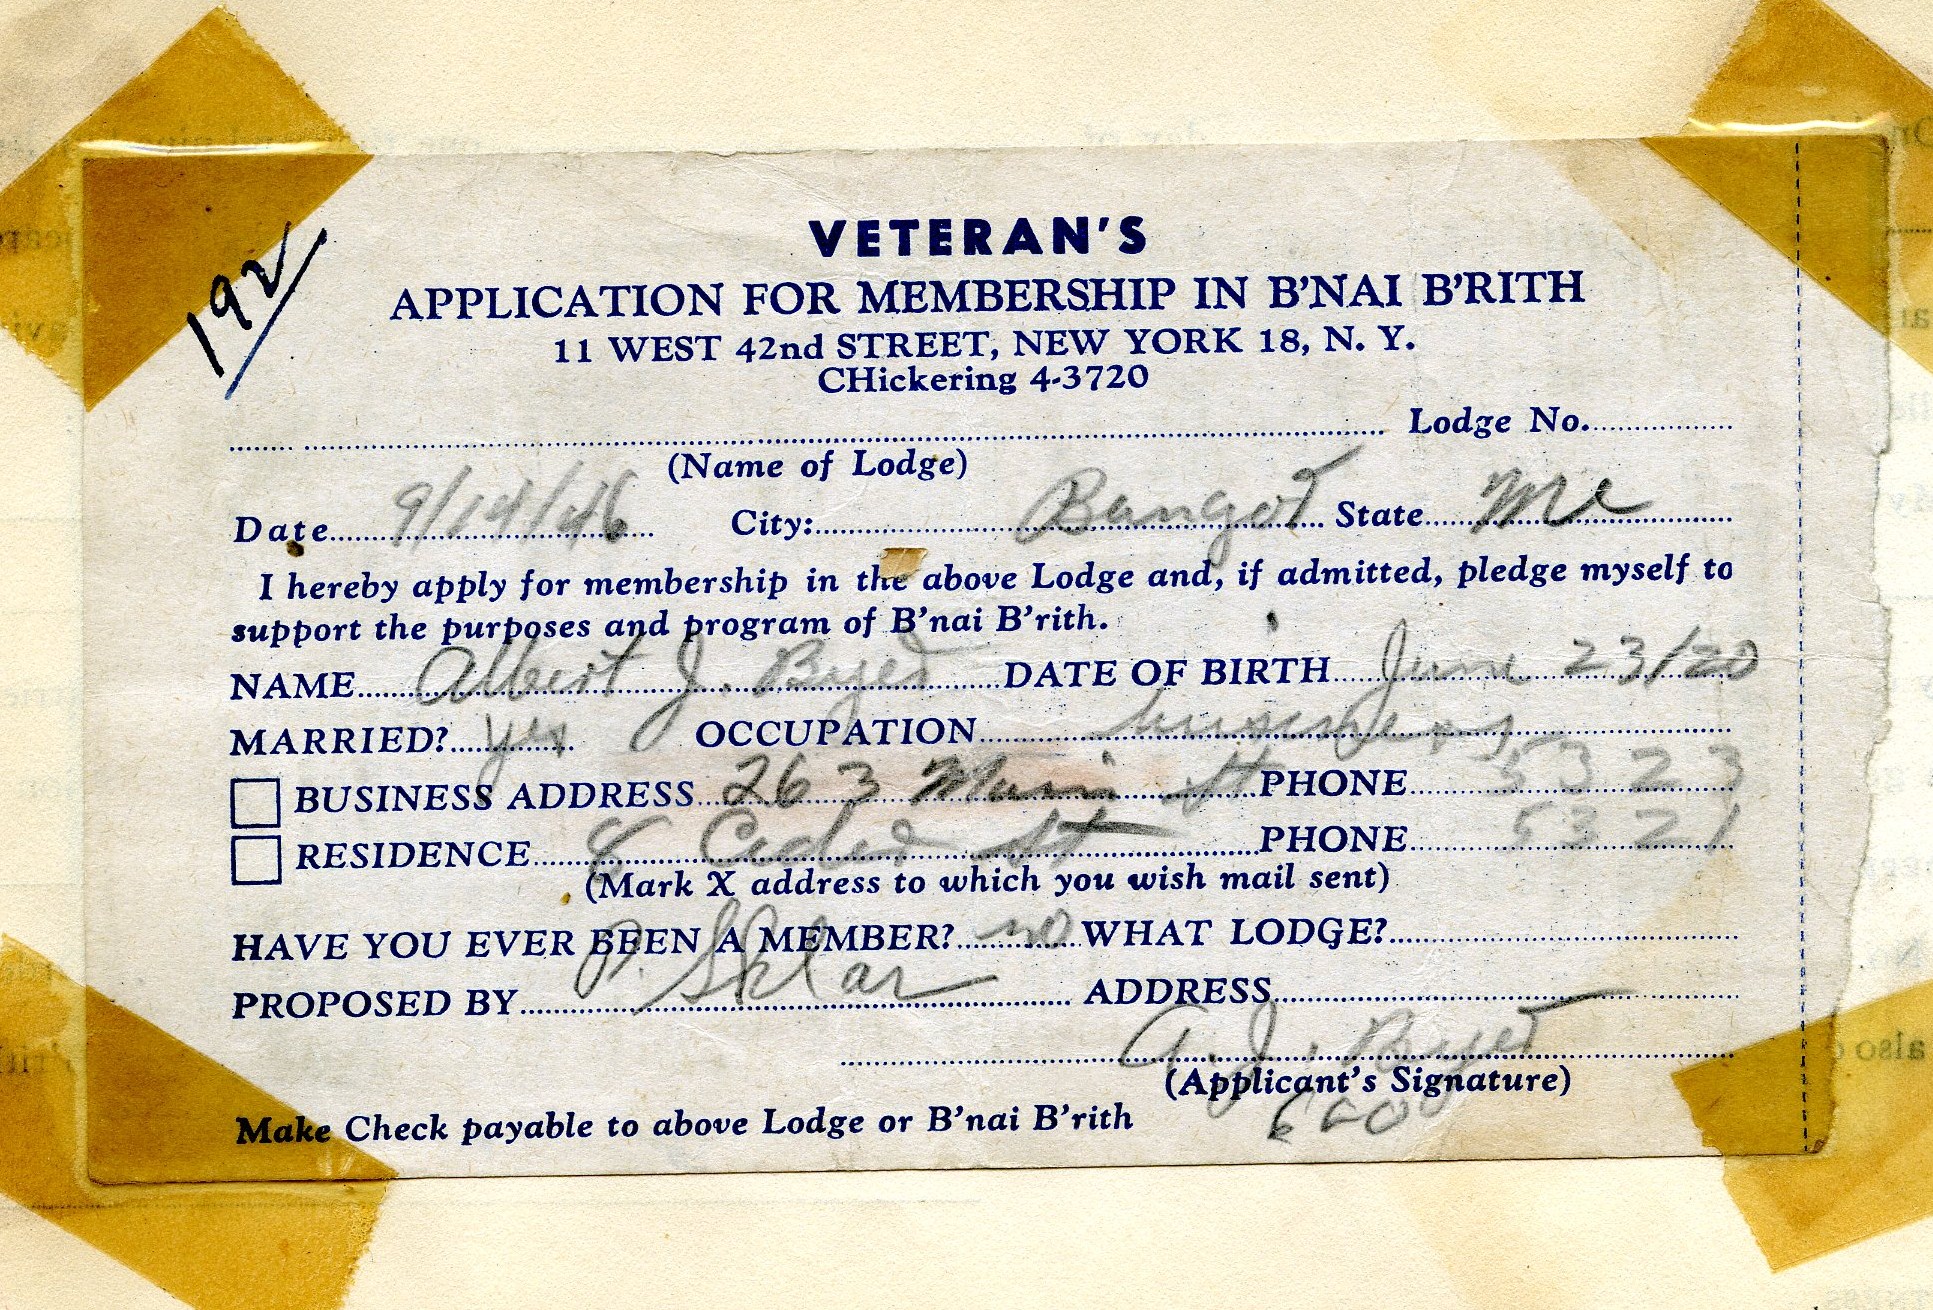 192/
VETERAN'S
APPLICATION FOR MEMBERSHIP IN B'NAI B'RITH
11 WEST 42nd STREET, NEW YORK 18, N. Y.
CHickering 4-3720
Lodge No.
(Name of Lodge)
Date 9/14/46 City: Bangor State Me
I hereby apply for membership in the above Lodge and, if admitted, pledge myself to
support the purposes and program of B'nai B'rith.
NAME Albert J. Byer DATE OF BIRTH June 23/20
MARRIED? yes OCCUPATION business
BUSINESS ADDRESS 263 Main St PHONE 5323
RESIDENCE 8 Cedar St PHONE 5321
(Mark X address to which you wish mail sent)
HAVE YOU EVER BEEN A MEMBER? no WHAT LODGE?
PROPOSED BY P. Sklar ADDRESS
A. J. Byer
(Applicant's Signature)
Make Check payable to above Lodge or B'nai B'rith